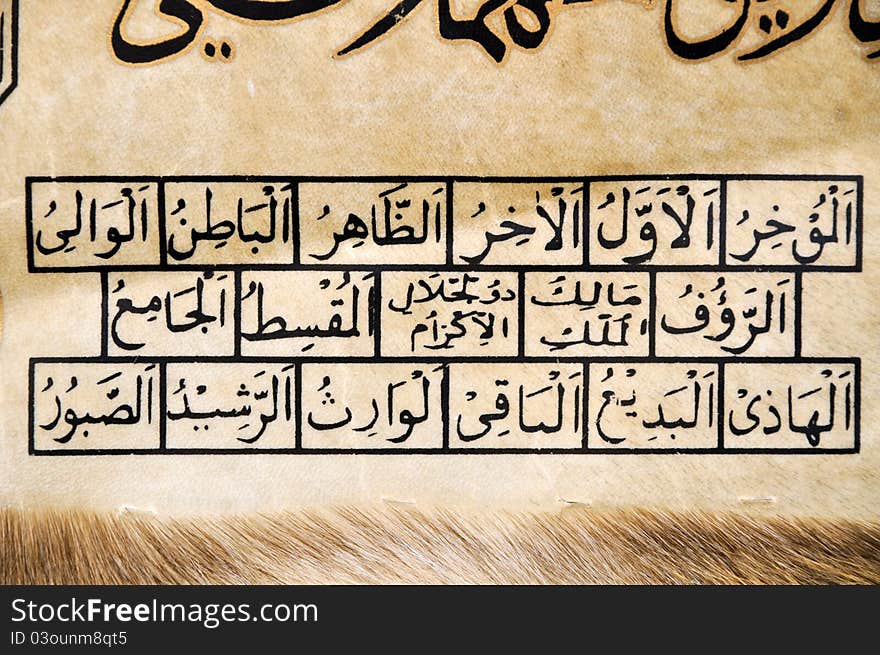 اَلْمُؤْخِرُ اَلْاَوَّلُ اَلْاٰخِرُ اَلظَّاهِرُ اَلْبَاطِنُ اَلْوَالِىُ
اَلرَّؤُفُ مَالِكَ الْمُلْكِ ذُو الْجَلَالِ الْاِكْرَامِ اَلْمُقْسِطُ اَلْجَامِعُ
اَلْهَاذِىْ اَلْبَدِيْعُ اَلْبَاقِىْ اَلْوَارِثُ اَلرَّشِيْدُ اَلصَّبُورُ
StockFreeImages.com
ID 03ounm8qt5